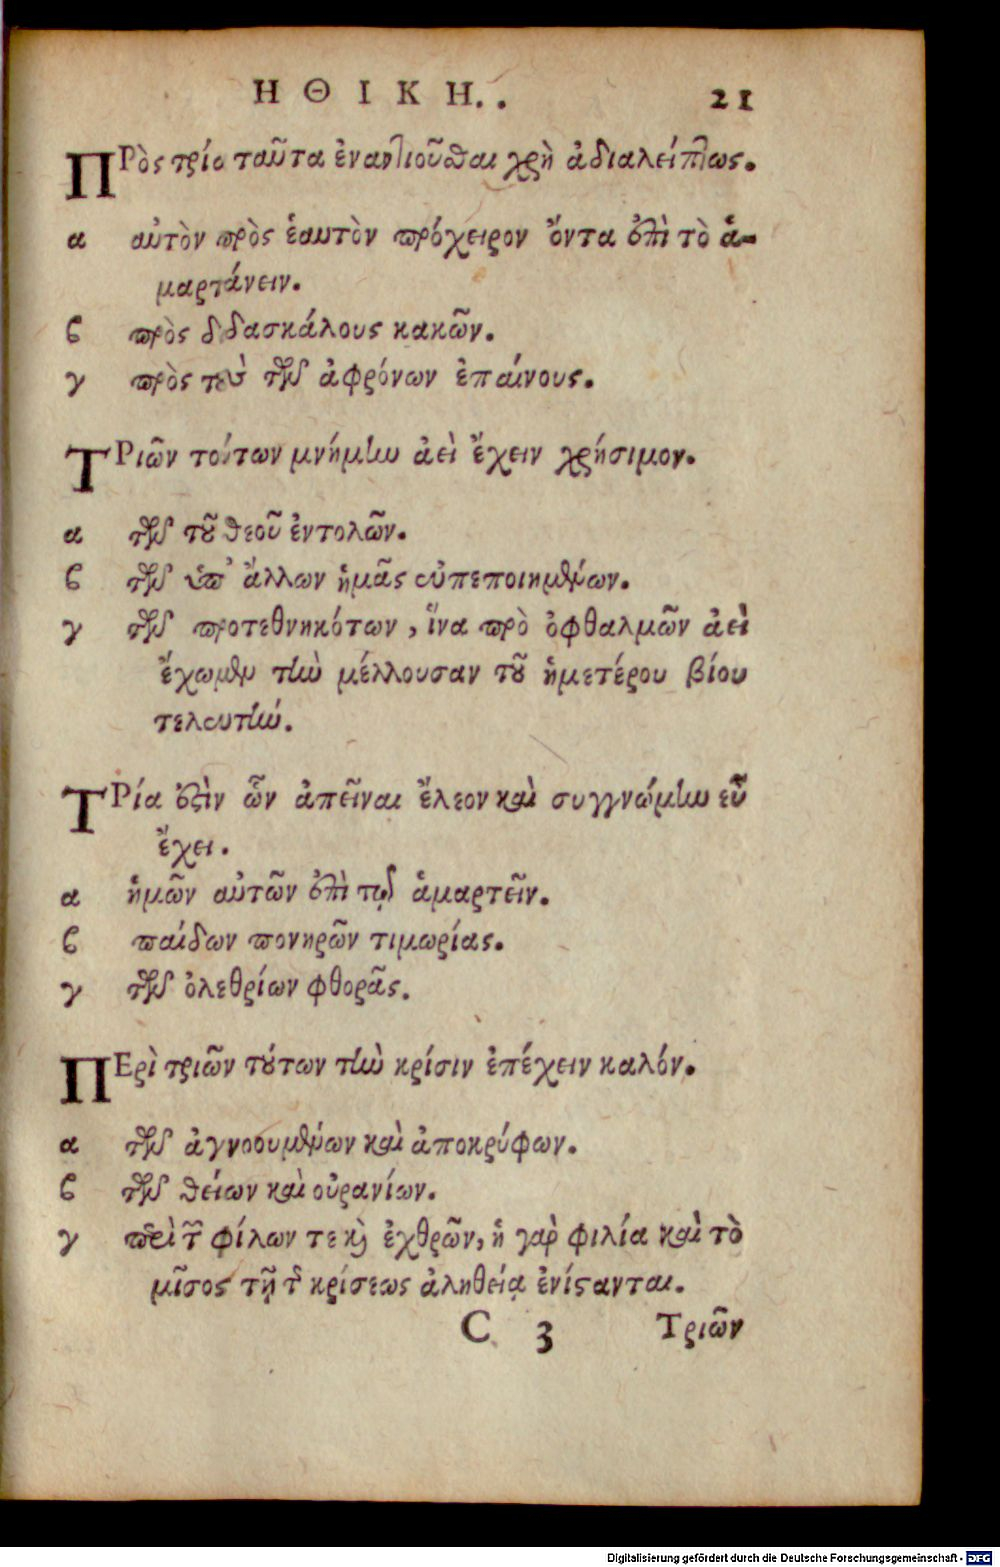 ΗΘΙΚΗ.. 21
ΠΡὸς τρία ταῦτα ἐναντιοῦσθαι χρὴ ἀδιαλείπτως.
α αὐτὸν πρὸς ἑαυτὸν πρόχειρον ὄντα ἐπὶ τὸ ἁ-
μαρτάνειν.
ϐ πρὸς διδασκάλους κακῶν.
γ πρὸς τοὺς τῶν ἀφρόνων ἐπαίνους.
ΤΡιῶν τούτων μνήμην ἀεὶ ἔχειν χρήσιμον.
α τῶν τοῦ θεοῦ ἐντολῶν.
ϐ τῶν ὑπ' ἄλλων ἡμᾶς εὐπεποιημένων.
γ τῶν προτεθνηκότων, ἵνα πρὸ ὀφθαλμῶν ἀεὶ
ἔχωμεν τὴν μέλλουσαν τοῦ ἡμετέρου βίου
τελευτήν.
ΤΡία ἐστὶν ὧν ἀπεῖναι ἔλεον καὶ συγγνώμην εὖ
ἔχει.
α ἡμῶν αὐτῶν ἐπὶ τῷ ἁμαρτεῖν.
ϐ παίδων πονηρῶν τιμωρίας.
γ τῶν ὀλεθρίων φθορᾶς.
ΠΕρὶ τριῶν τούτων τὴν κρίσιν ἐπέχειν καλόν.
α τῶν ἀγνοουμένων καὶ ἀποκρύφων.
ϐ τῶν θείων καὶ οὐρανίων.
γ περὶ τῶν φίλων τε καὶ ἐχθρῶν, ἡ γὰρ φιλία καὶ τὸ
μῖσος τῇ τῆς κρίσεως ἀληθείᾳ ἐνίστανται.
C 3 Τριῶν
Digitalisierung gefördert durch die Deutsche Forschungsgemeinschaft - DFG